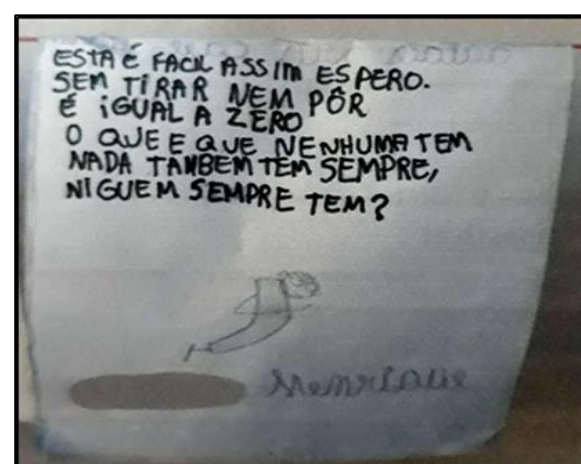 ESTA É FACIL ASSIM ESPERO.
SEM TIRAR NEM PÔR
É IGUAL A ZERO
O QUE E QUE NENHUMA TEM
NADA TAMBEM TEM SEMPRE,
NIGUEM SEMPRE TEM?